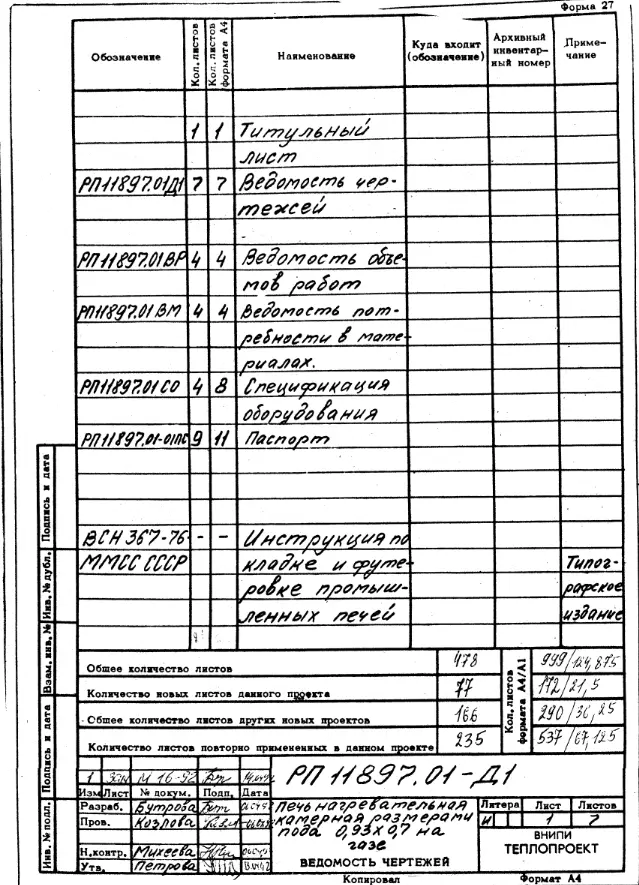 Форма 27
Обозначение Кол. листов Кол. листов формата А4 Наименование Куда входит (обозначение) Архивный инвентарный номер Примечание
1 1 Титульный
лист
РП11897.01Д1 7 7 Ведомость чер-
тежей
РП11897.01ВР 4 4 Ведомость объе-
мов работ
РП11897.01ВМ 4 4 Ведомость пот-
ребности в мате-
риалах.
РП11897.01СО 4 8 Спецификация
оборудования
РП11897.01-01ПС 9 11 Паспорт
ВСН 367-76 - - Инструкция по
ММСС СССР кладке и футе- Типог-
ровке промыш- рафское
ленных печей издание
Общее количество листов 478 999/124,875
Количество новых листов данного проекта 77 172/21,5
Общее количество листов других новых проектов 166 290/36,25
Количество листов повторно примененных в данном проекте 235 537/67,125
Кол. листов формата А4/А1
Подпись и дата
Инв. № дубл.
Взам. инв. №
Подпись и дата
Инв. № подл.
1 М 16-92
РП 11897.01-Д1
Изм Лист № докум. Подп. Дата
Разраб. Бутрова
Пров. Козлова
Н.контр. Михеева
Утв. Петрова
печь нагревательная
камерная размерами
пода 0,93х0,7 на
газе
ВЕДОМОСТЬ ЧЕРТЕЖЕЙ
Литера Лист Листов
И 1 7
ВНИПИ
ТЕПЛОПРОЕКТ
Копировал Формат А4